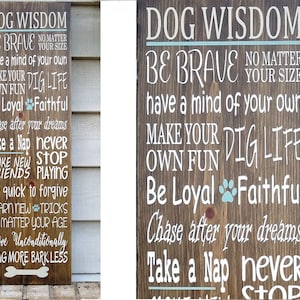 DOG WISDOM
BE BRAVE NO MATTER YOUR SIZE
have a mind of your own
MAKE YOUR OWN FUN DIG LIFE
Be Loyal Faithful
Chase after your dreams
Take a Nap never STOP PLAYING
quick to forgive
TRICKS
MATTER YOUR AGE
Unconditionally
MORE BARK LESS
DOG WISDOM
BE BRAVE NO MATTER YOUR SIZE
have a mind of your own
MAKE YOUR OWN FUN DIG LIFE
Be Loyal Faithful
Chase after your dreams
Take a Nap never